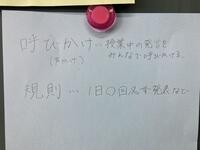 呼びかけ… 授業中の発言を
(声かけ) みんなで呼びかける。
規則… 1日〇回名字発表など